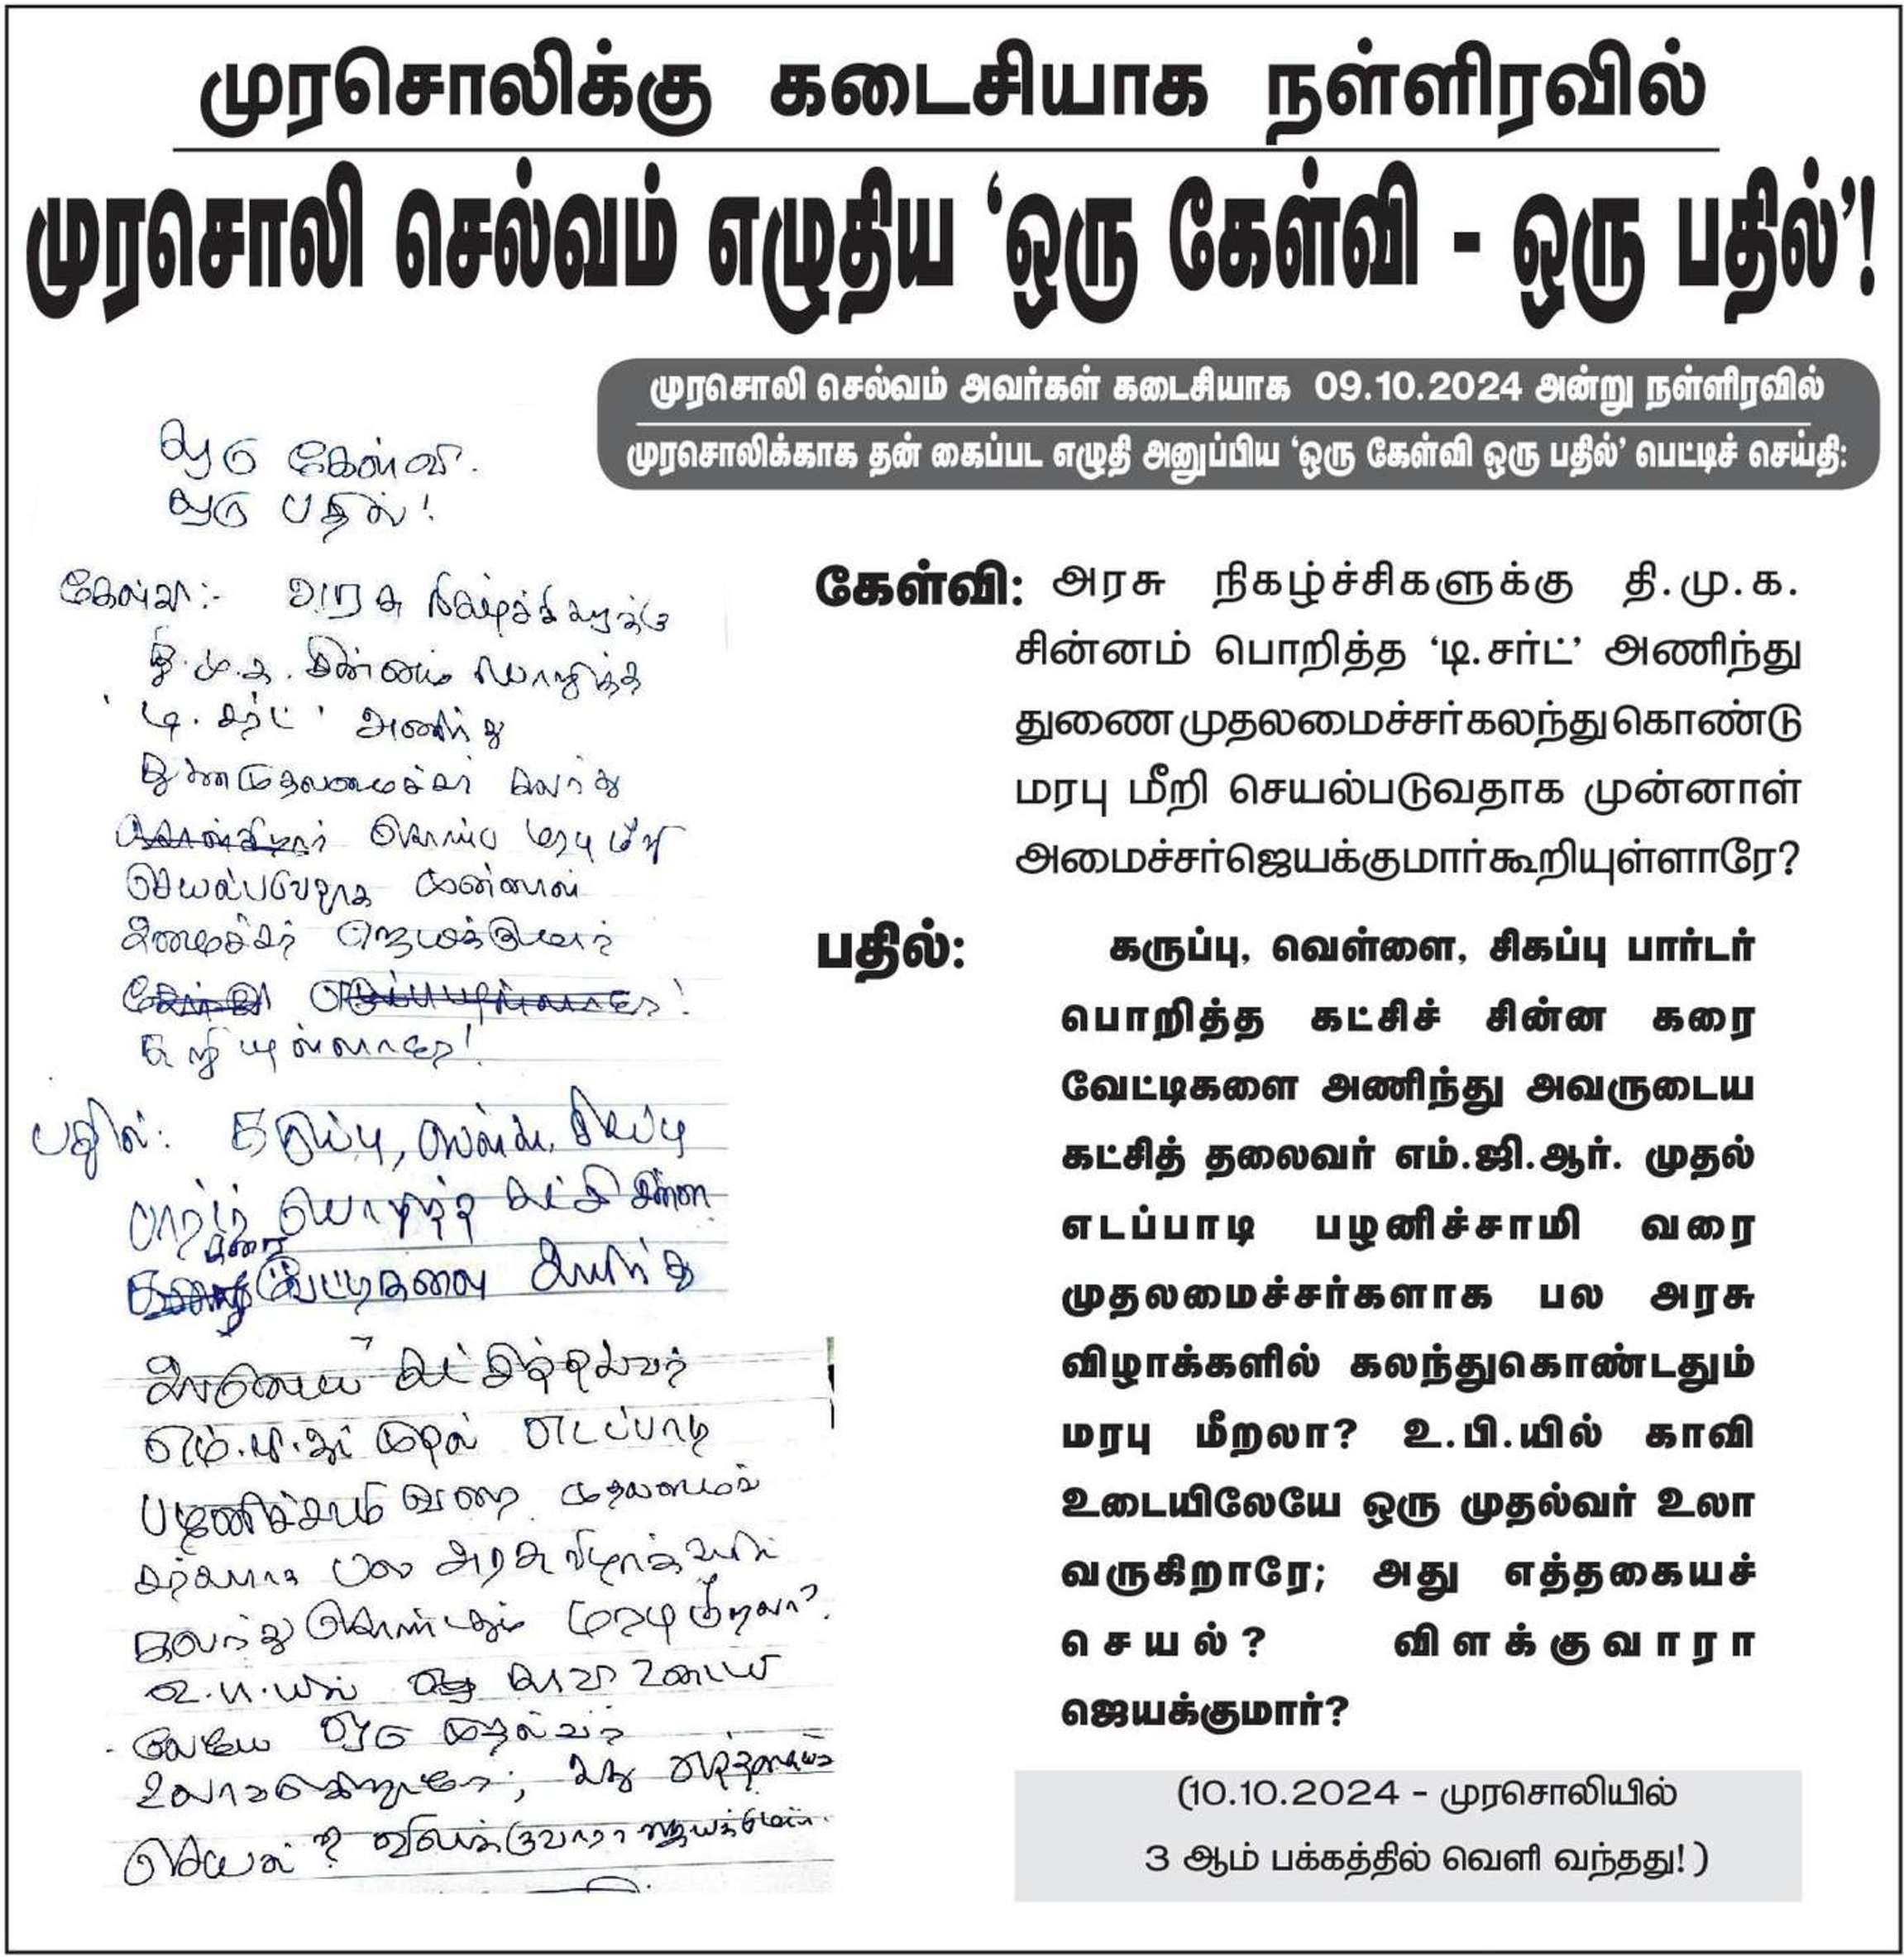 முரசொலிக்கு கடைசியாக நள்ளிரவில்
முரசொலி செல்வம் எழுதிய ‘ஒரு கேள்வி - ஒரு பதில்’!
முரசொலி செல்வம் அவர்கள் கடைசியாக 09.10.2024 அன்று நள்ளிரவில்
முரசொலிக்காக தன் கைப்பட எழுதி அனுப்பிய ‘ஒரு கேள்வி ஒரு பதில்’ பெட்டிச் செய்தி:
ஒரு கேள்வி.
ஒரு பதில்!
கேள்வி:- அரசு நிகழ்ச்சிகளுக்கு
தி.மு.க. சின்னம் பொறித்த
'டி. சர்ட்' அணிந்து
துணைமுதலமைச்சர் கலந்து
கொண்டு மரபு மீறி
செயல்படுவதாக முன்னாள்
அமைச்சர் ஜெயக்குமார்
கூறியுள்ளாரே!
பதில்: கருப்பு, வெள்ளை, சிகப்பு
பார்டர் பொறித்த கட்சி சின்ன
கரை
வேட்டிகளை அணிந்து
அவருடைய கட்சித்தலைவர்
எம்.ஜி.ஆர் முதல் எடப்பாடி
பழனிச்சாமி வரை முதலமைச்
சர்களாக பல அரசு விழாக்களில்
கலந்து கொண்டதும் மரபு மீறலா?
உ.பி.யில் காவி உடையி
லேயே ஒரு முதல்வர்
உலாவருகிறாரே; அது எத்தகைய
செயல்? விளக்குவாரா ஜெயக்குமார்.
கேள்வி: அரசு நிகழ்ச்சிகளுக்கு தி.மு.க.
சின்னம் பொறித்த ‘டி.சர்ட்’ அணிந்து
துணை முதலமைச்சர் கலந்து கொண்டு
மரபு மீறி செயல்படுவதாக முன்னாள்
அமைச்சர் ஜெயக்குமார் கூறியுள்ளாரே?
பதில்: கருப்பு, வெள்ளை, சிகப்பு பார்டர்
பொறித்த கட்சிச் சின்ன கரை
வேட்டிகளை அணிந்து அவருடைய
கட்சித் தலைவர் எம்.ஜி.ஆர். முதல்
எடப்பாடி பழனிச்சாமி வரை
முதலமைச்சர்களாக பல அரசு
விழாக்களில் கலந்துகொண்டதும்
மரபு மீறலா? உ.பி.யில் காவி
உடையிலேயே ஒரு முதல்வர் உலா
வருகிறாரே; அது எத்தகையச்
செயல்? விளக்குவாரா
ஜெயக்குமார்?
(10.10.2024 - முரசொலியில்
3 ஆம் பக்கத்தில் வெளி வந்தது!)